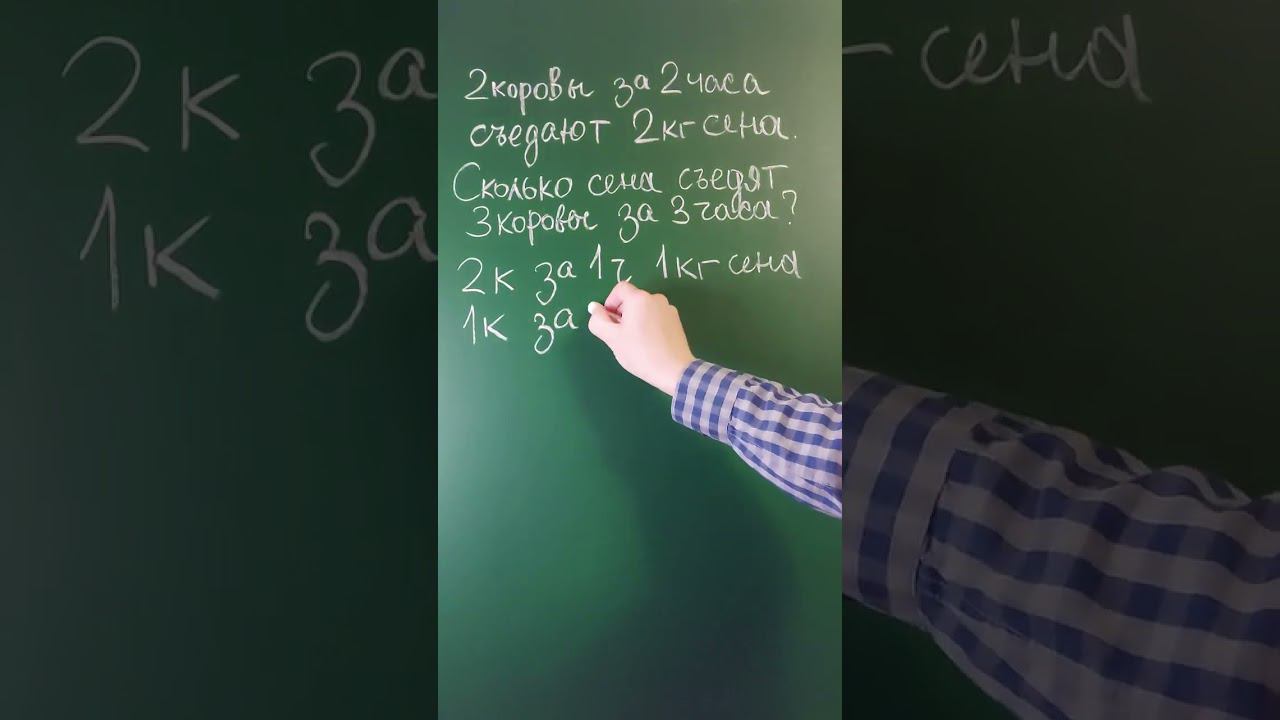 2коровы за 2 часа
съедают 2кг сена.
Сколько сена съедят
3коровы за 3 часа?
2к за 1ч 1кг сена
1к за